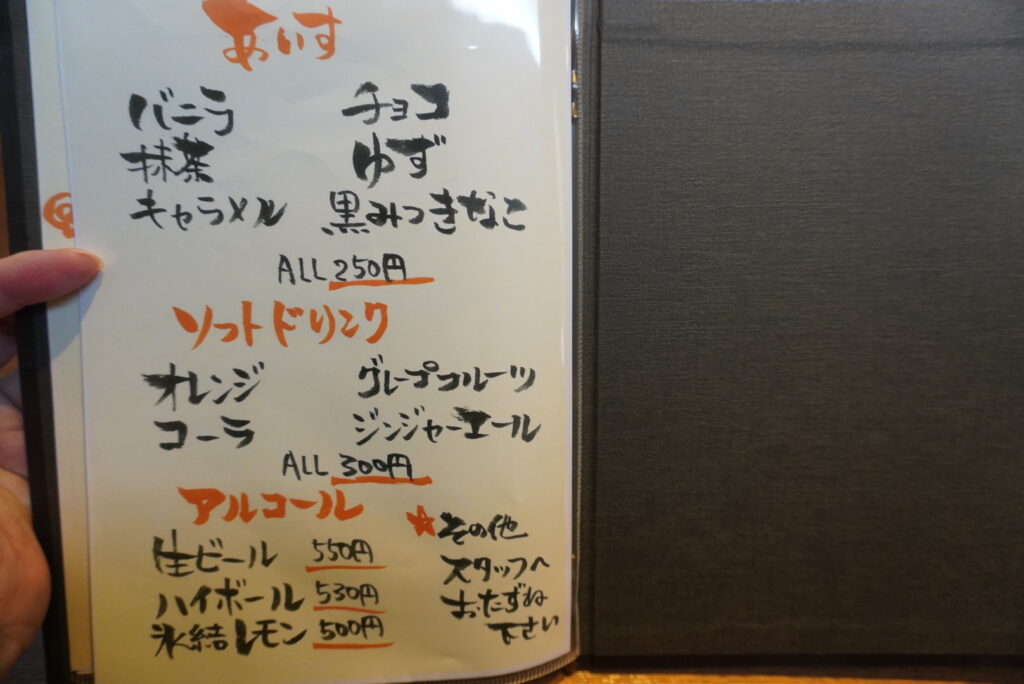 あいす
バニラ チョコ
抹茶 ゆず
キャラメル 黒みつきなこ
ALL 250円
ソフトドリンク
オレンジ グレープフルーツ
コーラ ジンジャーエール
ALL 300円
アルコール
生ビール 550円
ハイボール 530円
氷結レモン 500円
★その他
スタッフへ
おたずね
下さい